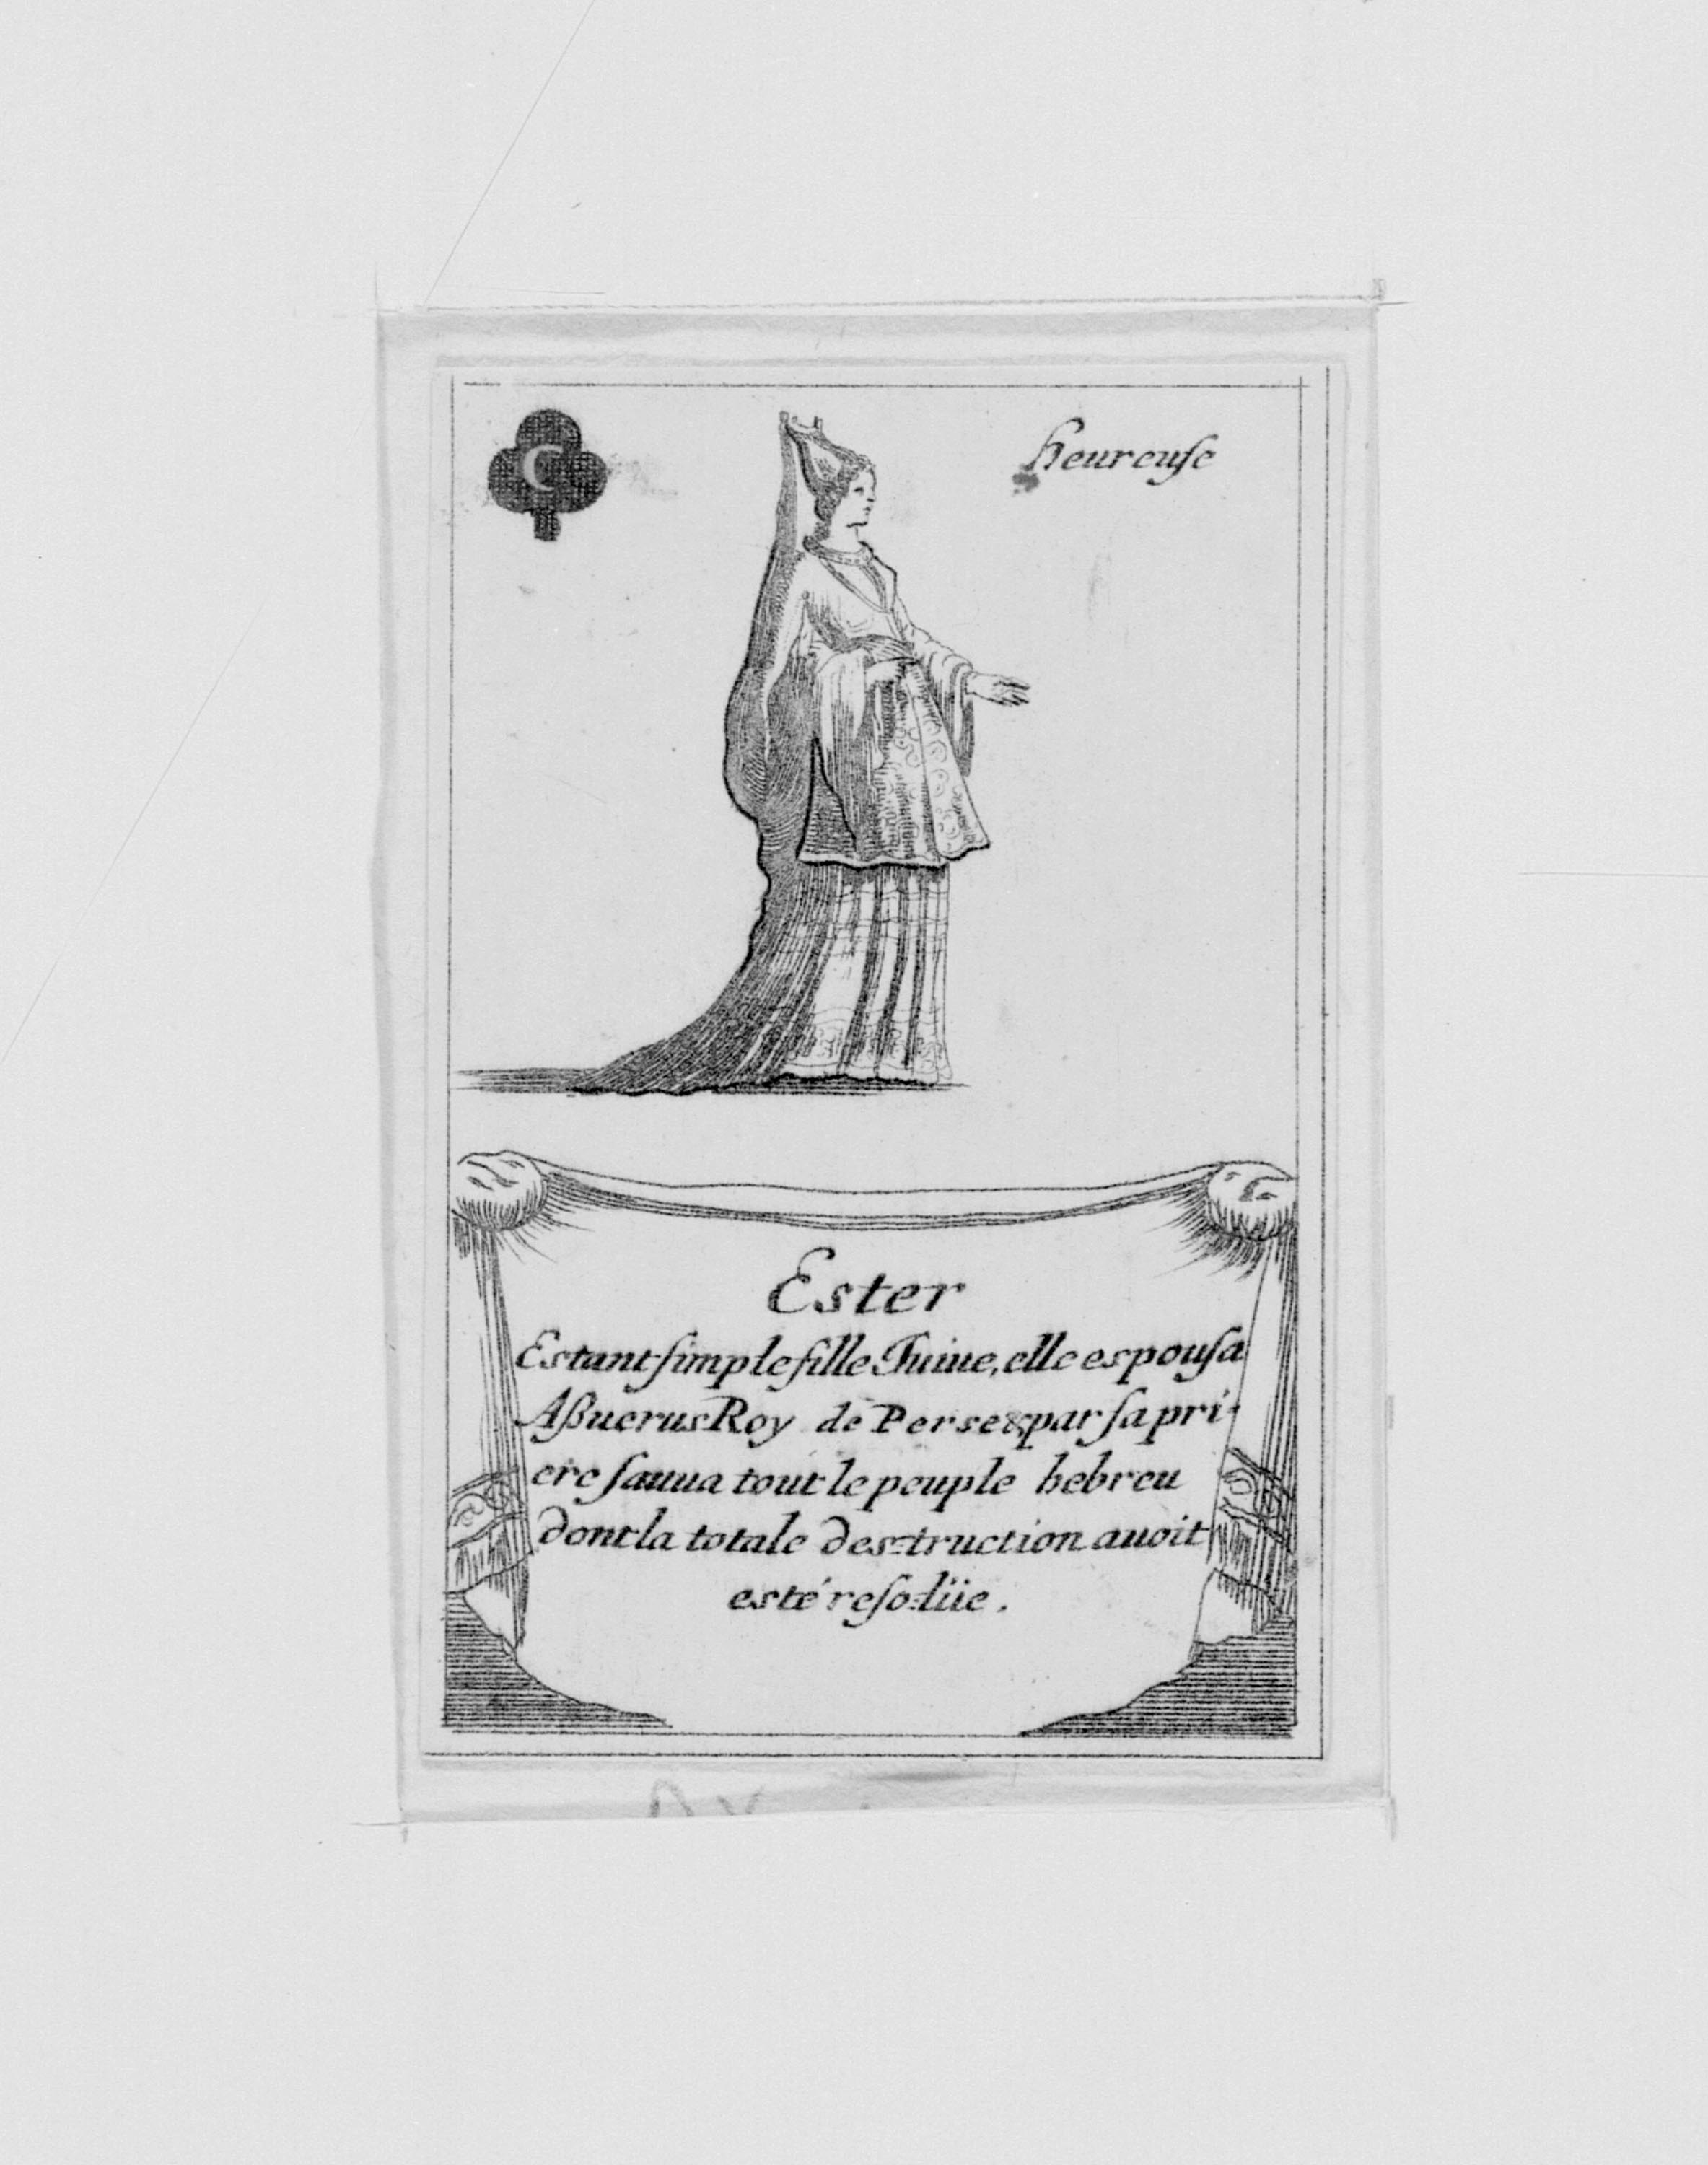 heureuſe
Ester
Estant ſimple fille Juiue, elle espouſa
Aßuerus Roy de Perse & par ſa pri-
ere ſauua tout le peuple hebreu
dont la totale destruction auoit
esté reſolüe.